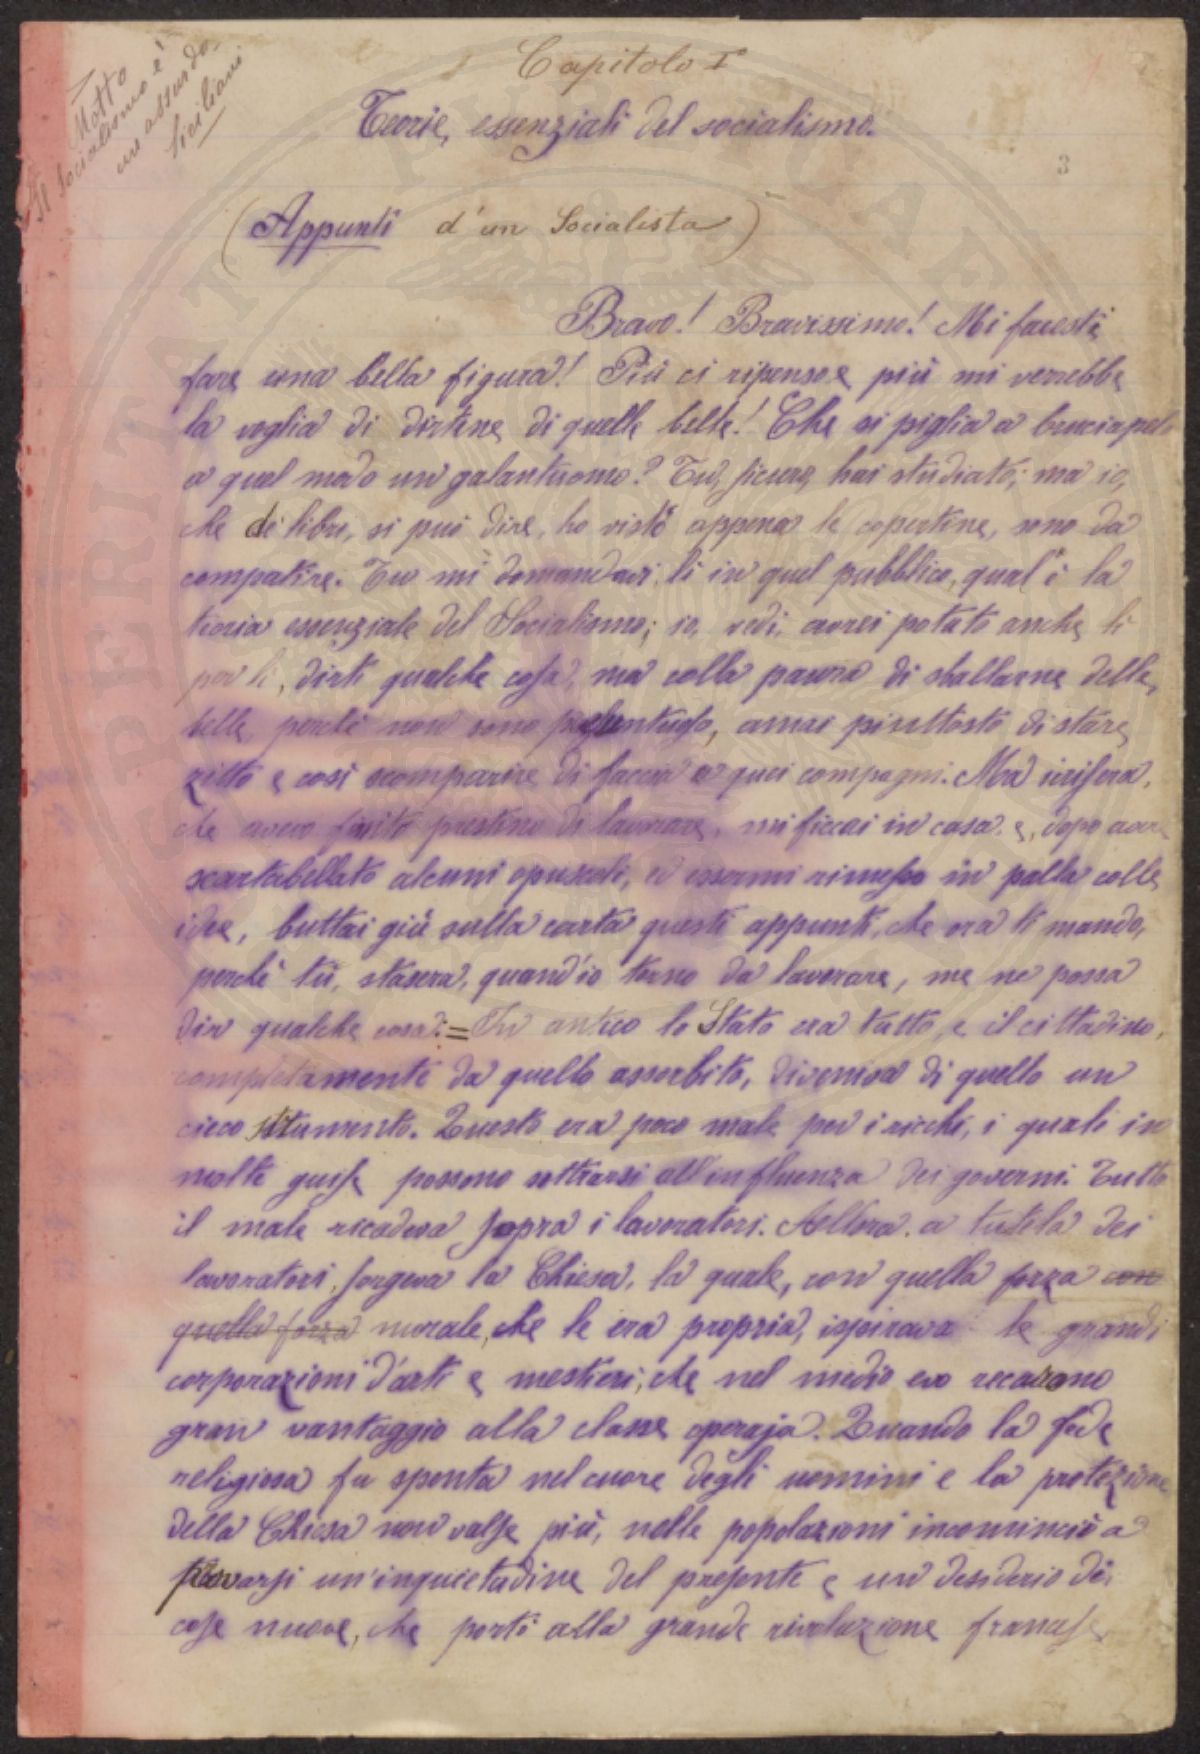 Motto
Il Socialismo è
un assurdo.
Siciliani
Capitolo I°
Teorie essenziali del socialismo.
3
(Appunti d'un Socialista)
Bravo! Bravissimo! Mi facesti
fare una bella figura! Più ci ripenso e più mi verrebbe
la voglia di dirtene di quelle belle! Che si piglia a bruciapelo
a quel modo un galantuomo? Tu, sicuro, hai studiato; ma io,
che di libri, si può dire, ho visto appena le copertine, sono da
compatire. Tu mi domandavi lì in quel pubblico, qual'è la
teoria essenziale del Socialismo; io, vedi, avrei potuto anche lì
per lì, dirti qualche cosa, ma colla paura di sballarne delle
belle, perchè non sono presentuoso, amai piuttosto di stare
zitto e così scomparire di faccia a quei compagni. Ma iersera,
che avevo finito prestino di lavorare, mi ficcai in casa, e, dopo aver
scartabellato alcuni opuscoli, ed essermi rimesso in palla colle
idee, buttai giù sulla carta questi appunti, che ora ti mando,
perchè tu, stasera, quand'io torno da lavorare, me ne possa
dir qualche cosa: = In antico lo Stato era tutto, e il cittadino,
completamente da quello assorbito, diveniva di quello un
cieco strumento. Questo era poco male per i ricchi, i quali in
molte guise possono sottrarsi all'influenza dei governi. Tutto
il male ricadeva sopra i lavoratori. Allora, a tutela dei
lavoratori, sorgeva la Chiesa, la quale, con quella forza con
quella forza morale, che le era propria, ispirava le grandi
corporazioni d'arti e mestieri, che nel medio evo recarono
gran vantaggio alla classe operaja. Quando la fede
religiosa fu spenta nel cuore degli uomini e la protezione
della Chiesa non valse più, nelle popolazioni incominciò a
provarsi un'inquietudine del presente e un desiderio di
cose nuove, che portò alla grande rivoluzione francese